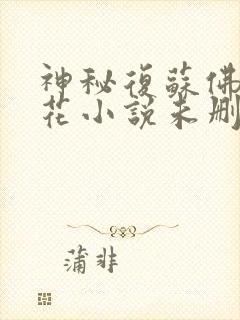 神秘復蘇佛
花小說未刪
蒲非